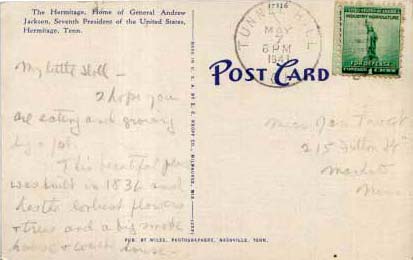 The Hermitage, Home of General Andrew
Jackson, Seventh President of the United States,
Hermitage, Tenn.
17316
TUNNEL HILL
MAY
6 PM
1941
POST CARD
UNITED STATES OF AMERICA
INDUSTRY AGRICULTURE
FOR DEFENSE
1 CENT
My little Doll -
I hope you
are eating and growing
by a lot.
This beautiful place
was built in 1836 and
has the loveliest flowers
+ trees and a big smoke
house + coach house -
Miss Jan
215 Fulton St
Minn
PUB. BY WILES, PHOTOGRAPHERS, NASHVILLE, TENN.
MADE IN U. S. A. BY E. C. KROPP CO., MILWAUKEE, WIS.